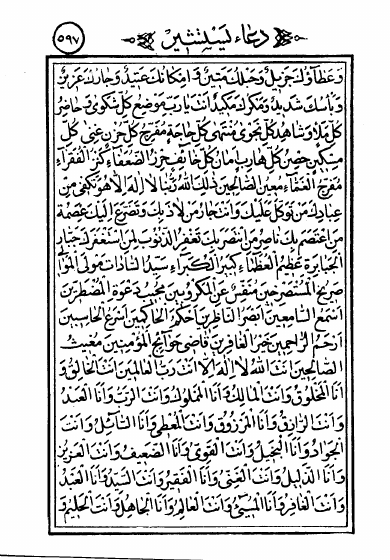 دعاء يستشير
٥٩٧
وعطاؤك جزيل وحبلك متين وامكانك عتيد وجارك عزيز
وبأسك شديد ومكرك مكيد انت يا رب موضع كل شكوى وحاضر
كل ملاء وشاهد كل نجوى منتهى كل حاجة مفرج كل حزن غنى كل
مسكين حصن كل هارب امان كل خائف حرز الضعفاء كنز الفقراء
مفرج الغماء معين الصالحين ذلك الله ربنا لا اله الا هو تكفى من
عبادك من توكل عليك وانت جار من لاذ بك وتضرع اليك عصمة
من اعتصم بك ناصر من انتصر بك تغفر الذنوب لمن استغفرك جبار
الجبابرة عظيم العظماء كبير الكبراء سيد السادات مولى الموالى
صريخ المستصرخين منفس عن المكروبين مجيب دعوة المضطرين
اسمع السامعين ابصر الناظرين احكم الحاكمين اسرع الحاسبين
ارحم الراحمين خير الغافرين قاضى حوائج المؤمنين مغيث
الصالحين انت الله لا اله الا انت رب العالمين انت الخالق و
انا المخلوق وانت المالك وانا المملوك وانت الرب وانا العبد
وانت الرازق وانا المرزوق وانت المعطى وانا السائل وانت
الجواد وانا البخيل وانت القوى وانا الضعيف وانت العزيز
وانا الذليل وانت الغنى وانا الفقير وانت السيد وانا العبد
وانت الغافر وانا المسىء وانت العالم وانا الجاهل وانت الحليم و